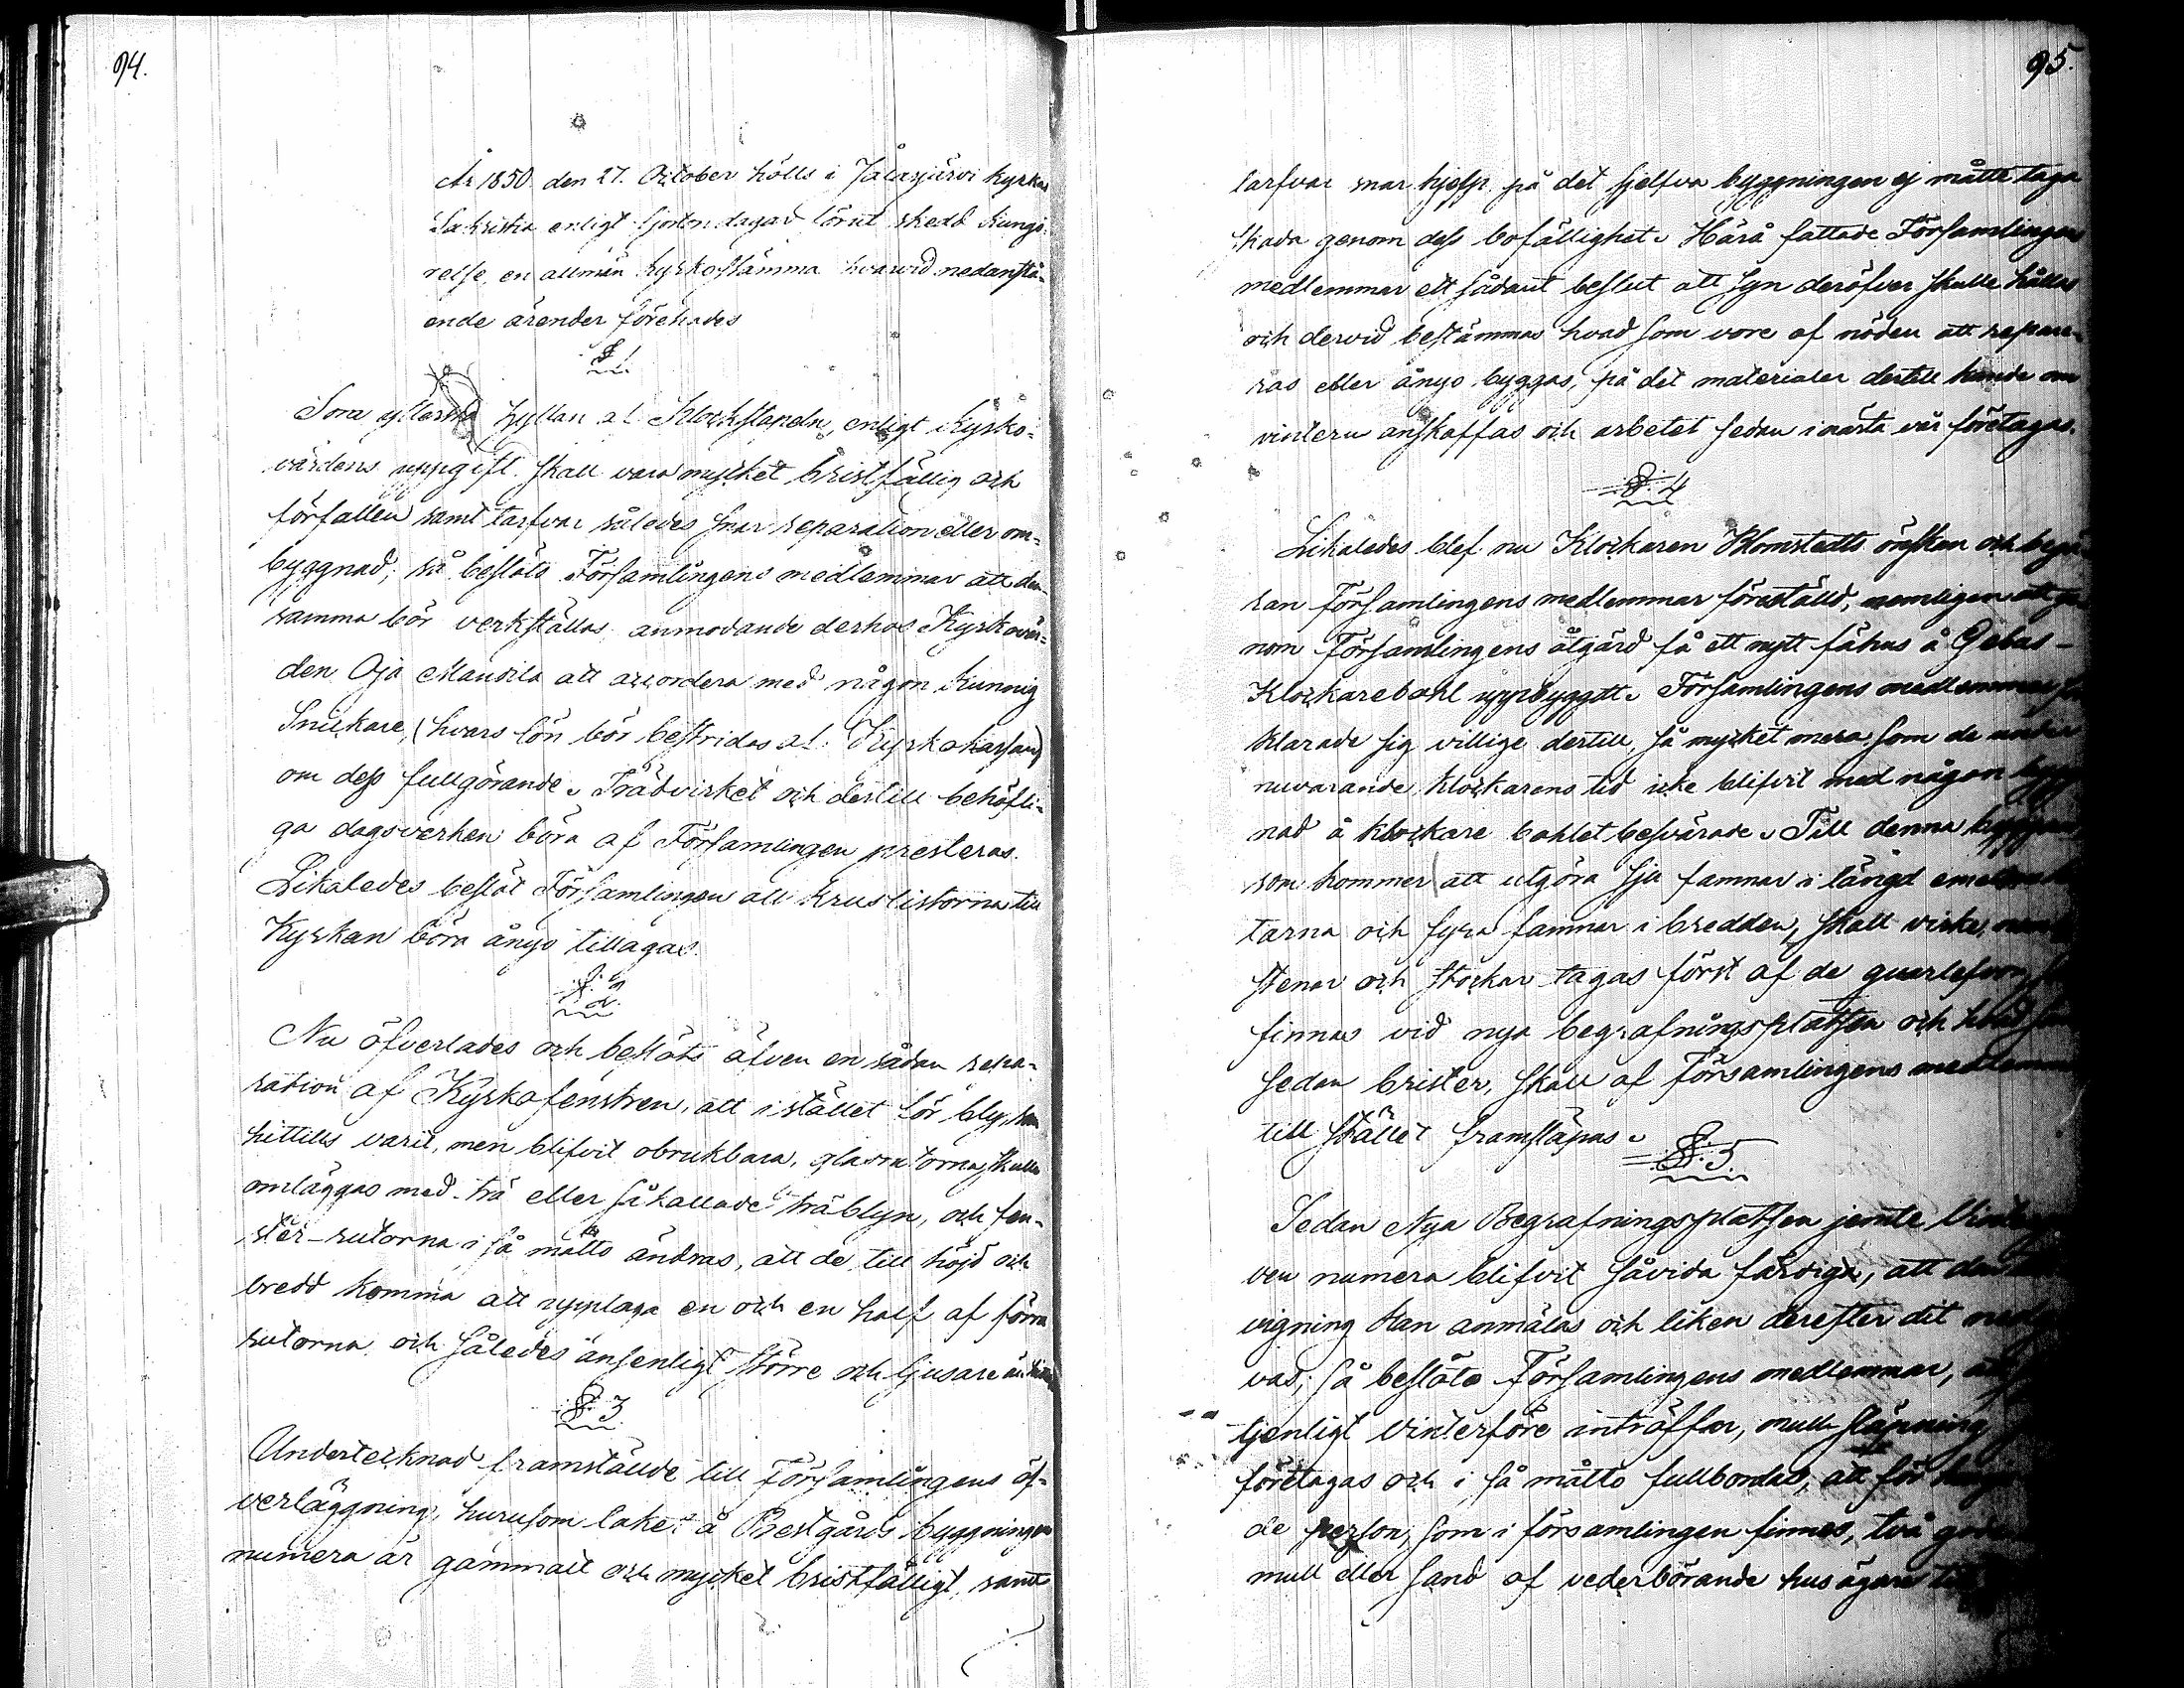 94.
År 1850 den 27. October hölls i Jalasjärvi kyrkas
Sakristia enligt fjorton dagar förut skedd kungö-
relse, en allmän kyrkostämma hvarvid nedanstå-
ende ärender förehades
§ 1.
Som yttersta hyllan af Klockstapeln, enligt Kyrko-
värdens uppgift skall vara mycket bristfällig och
förfallen samt tarfvar således snar reparation eller om-
byggnad; så beslöts Församlingens medlemmar att den-
samma bör verkställas anmodande derhos Kyrkovär-
den Oja Mansila att accordera med någon kunnig
Snickare, (hvars lön bör bestridas af Kyrkokassan)
om dess fullgörande. Trädvirket och dertill behöfli-
ga dagsverken böra af Församlingen presteras.
Likaledes beslöt Församlingen att kruslistorna till
Kyrkan böra ånyo tillagas.
§ 2.
Nu öfverlades och beslöts äfven en sådan repa-
ration af Kyrkofenstren, att i stället för bly, som
hittills varit, men blifvit obrukbara, glasrutorna skulle
omläggas med trä eller så kallade träblyn, och fen-
ster-rutorna i så måtto ändras, att de till höjd och
bredd komma att upptaga en och en half af förra
rutorna och således ansenligt större och ljusare än
§ 3.
Undertecknad framställde till Församlingens öf-
verläggning, hurusom taket å Prestgårds byggningen
numera är gammalt och mycket bristfälligt, samt
95.
tarfvar snar hjelp på det sjelfva byggningen ej måtte taga
skada genom dess bofällighet. Härå fattade Församlingens
medlemmar ett sådant beslut att syn deröfver skulle hållas
och dervid bestämmas hvad som vore af nöden att repare-
ras eller ånyo byggas, på det materialer dertill kunde om
vintern anskaffas och arbetet sedan i nästa vår företagas.
§. 4
Likaledes blef nu Klockaren Blomstedts önskan och begä-
ran Församlingens medlemmar föreställd, nemligen att ge-
nom Församlingens åtgärd få ett nytt fähus å Gebas-
Klockarebohl uppbyggdt. Församlingens medlemmar
klarade sig villige dertill, så mycket mera som de under
nuvarande Klockarens tid icke blifvit med någon bygg-
nad å klockare bohlet besvärade. Till denna
som kommer att utgöra sju famnar i längd
tarna och fyra famnar i bredden, skall virke,
stenar och stockar tagas först af de
finnas vid nya begrafningsplatsen och hvad
sedan brister, skall af Församlingens medlemmar
till stället framsläpas.
§. 5.
Sedan Nya Begrafningsplatsen jemte
ven numera blifvit såvida färdiga, att
vigning kan anmälas och liken derefter dit
vas; så beslöts Församlingens medlemmar,
tjenligt vinterföre inträffar, mull släpning
företagas och i så måtto fullbordas, att för
de person, som i församlingen finnes, två
mull eller sand af vederbörande husägare